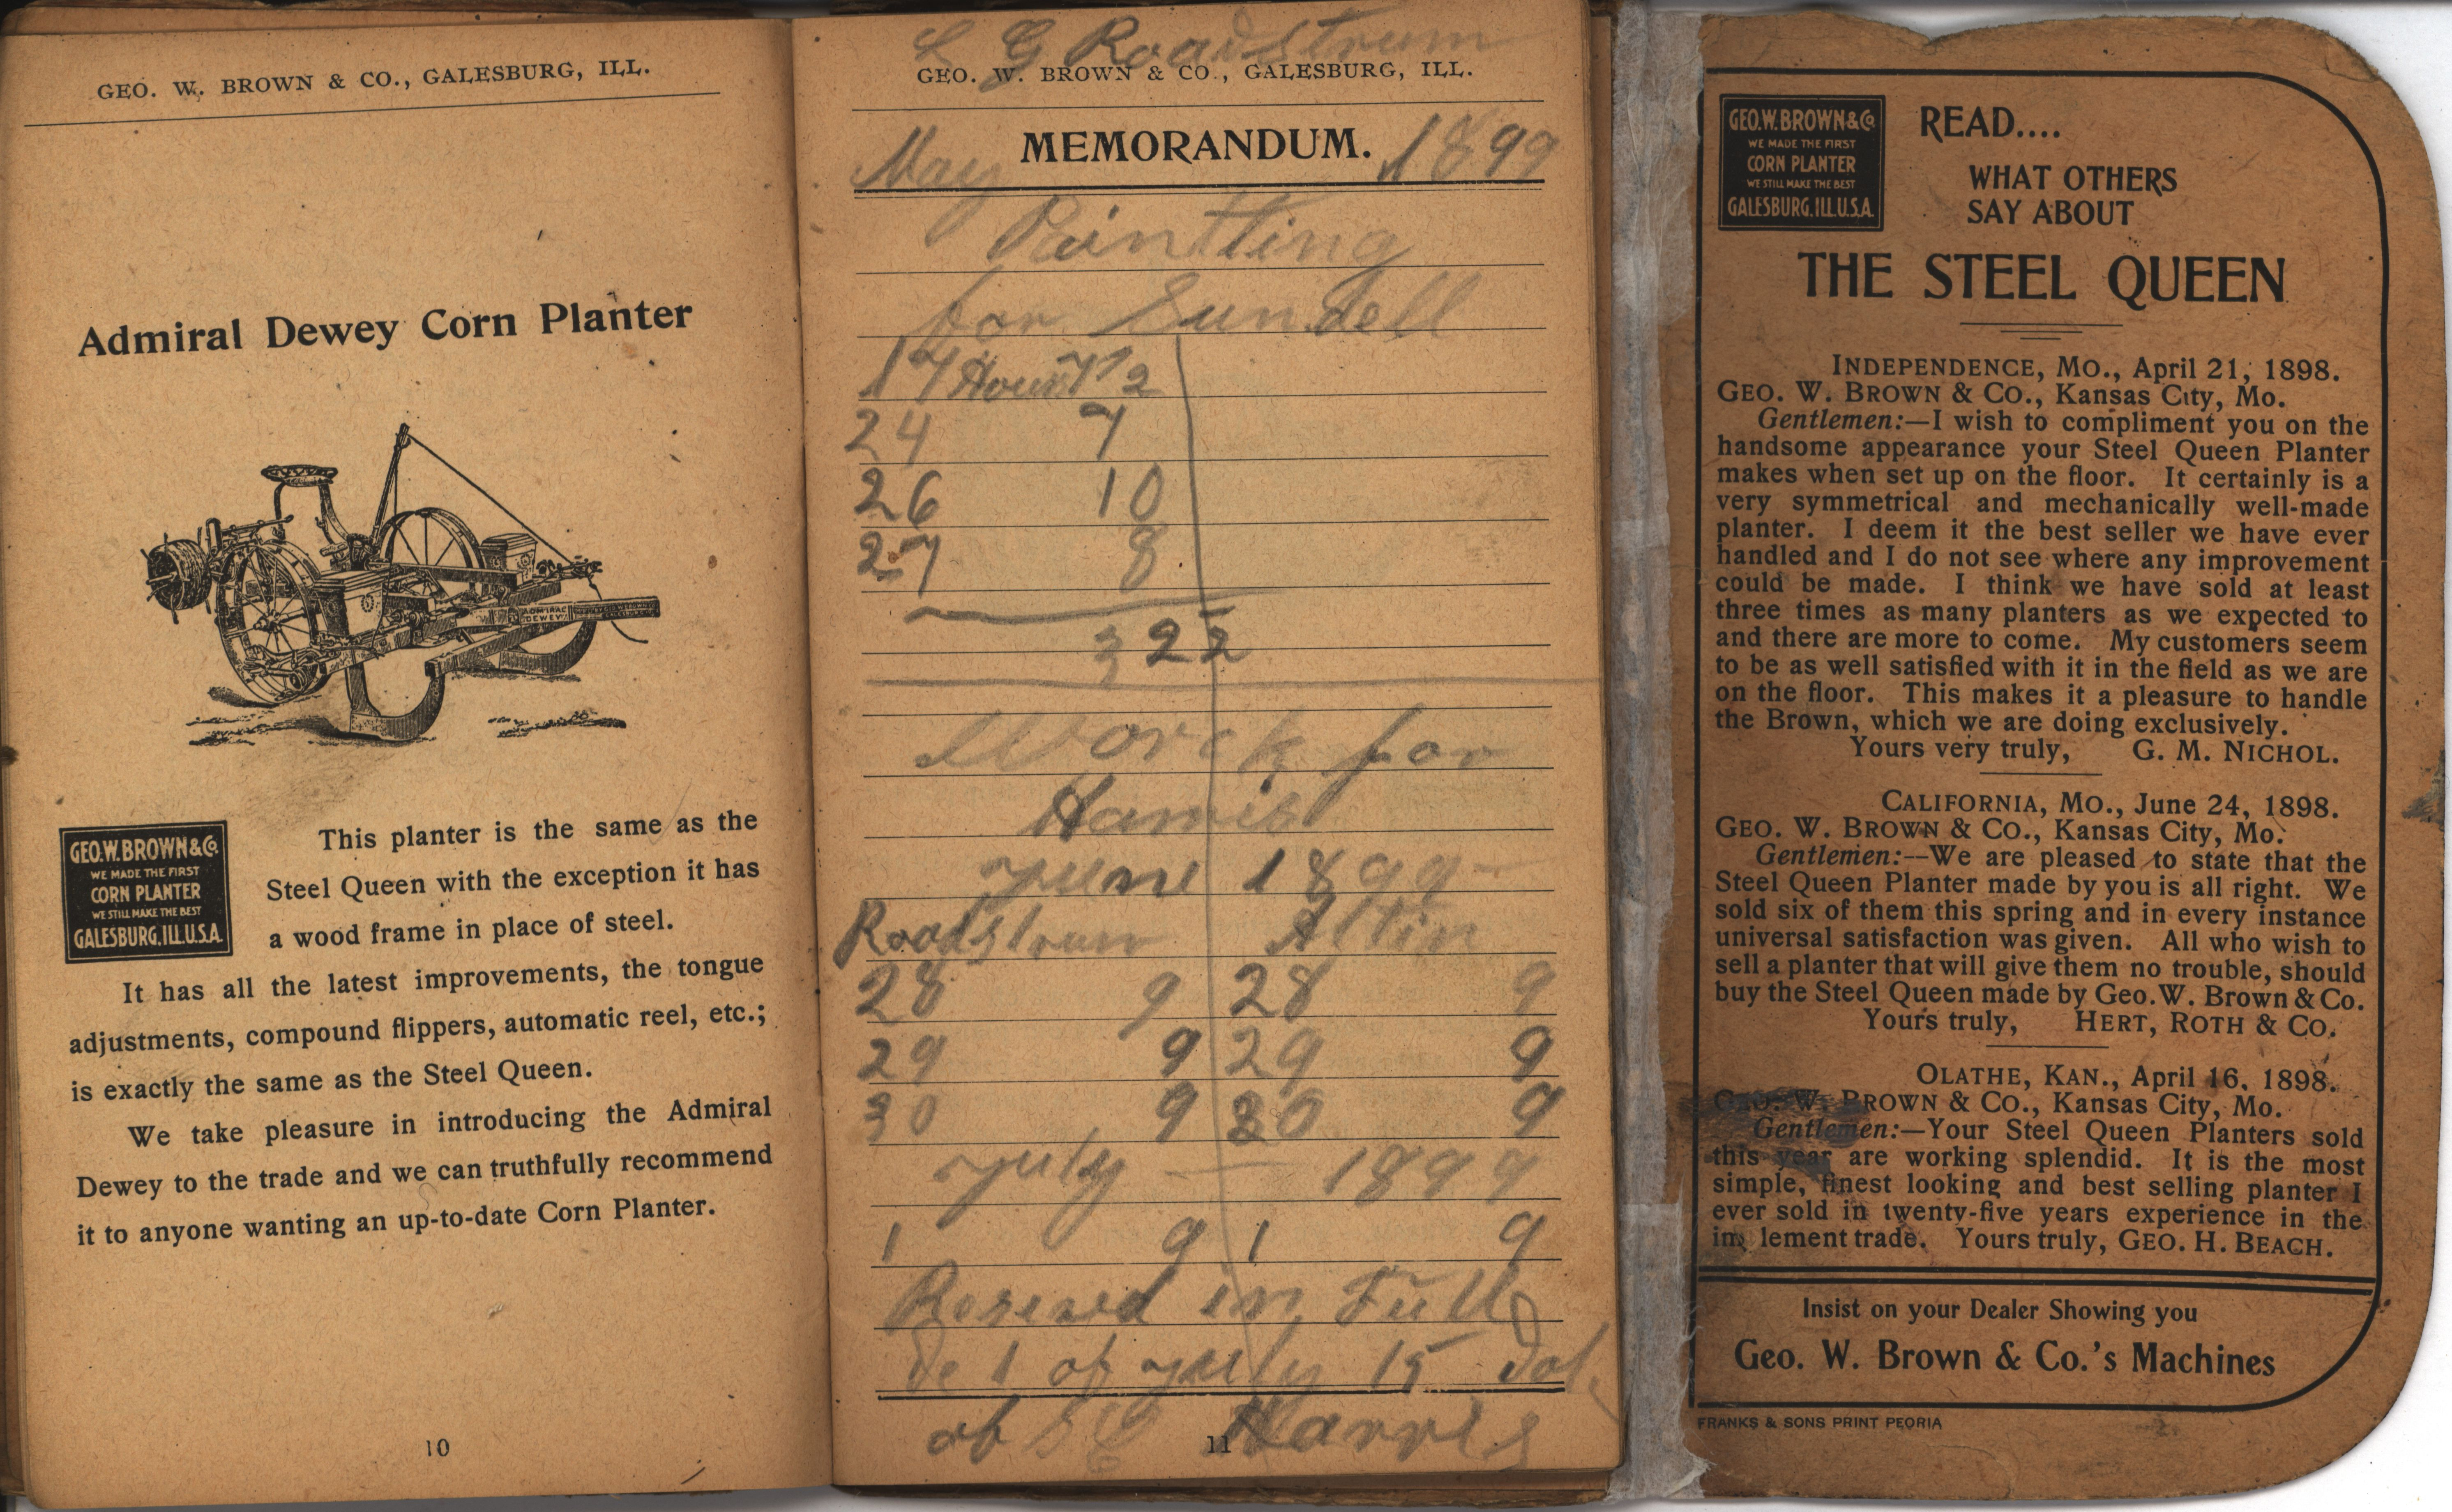 GEO. W. BROWN & CO., GALESBURG, ILL.
Admiral Dewey Corn Planter
ADMIRAL
DEWEY
GEO.W.BROWN & CO.
WE MADE THE FIRST
CORN PLANTER
WE STILL MAKE THE BEST
GALESBURG. ILL.U.S.A.
This planter is the same as the
Steel Queen with the exception it has
a wood frame in place of steel.
It has all the latest improvements, the tongue
adjustments, compound flippers, automatic reel, etc.;
is exactly the same as the Steel Queen.
We take pleasure in introducing the Admiral
Dewey to the trade and we can truthfully recommend
it to anyone wanting an up-to-date Corn Planter.
10
G Roadstrum
GEO. W. BROWN & CO., GALESBURG, ILL.
MEMORANDUM.
May 1899
Paintting
for Sundell
17 Hour 7 1/2
24 7
26 10
27 8
32 2
Worck for
Harris
yune 1899
Roadstrum Altin
28 9 28 9
29 9 29 9
30 9 30 9
yuly — 1899
1 9 1 9
Reseved in Full
de 1 of yuly 15 dol.
of Harris
11
GEO.W.BROWN & CO.
WE MADE THE FIRST
CORN PLANTER
WE STILL MAKE THE BEST
GALESBURG. ILL.U.S.A.
READ....
WHAT OTHERS
SAY ABOUT
THE STEEL QUEEN
INDEPENDENCE, MO., April 21, 1898.
GEO. W. BROWN & CO., Kansas City, Mo.
Gentlemen:—I wish to compliment you on the
handsome appearance your Steel Queen Planter
makes when set up on the floor. It certainly is a
very symmetrical and mechanically well-made
planter. I deem it the best seller we have ever
handled and I do not see where any improvement
could be made. I think we have sold at least
three times as many planters as we expected to
and there are more to come. My customers seem
to be as well satisfied with it in the field as we are
on the floor. This makes it a pleasure to handle
the Brown, which we are doing exclusively.
Yours very truly, G. M. NICHOL.
CALIFORNIA, MO., June 24, 1898.
GEO. W. BROWN & CO., Kansas City, Mo.
Gentlemen:--We are pleased to state that the
Steel Queen Planter made by you is all right. We
sold six of them this spring and in every instance
universal satisfaction was given. All who wish to
sell a planter that will give them no trouble, should
buy the Steel Queen made by Geo. W. Brown & Co.
Yours truly, HERT, ROTH & CO.
OLATHE, KAN., April 16, 1898.
GEO. W. BROWN & CO., Kansas City, Mo.
Gentlemen:—Your Steel Queen Planters sold
this year are working splendid. It is the most
simple, finest looking and best selling planter I
ever sold in twenty-five years experience in the
implement trade. Yours truly, GEO. H. BEACH.
Insist on your Dealer Showing you
Geo. W. Brown & Co.'s Machines
FRANKS & SONS PRINT PEORIA